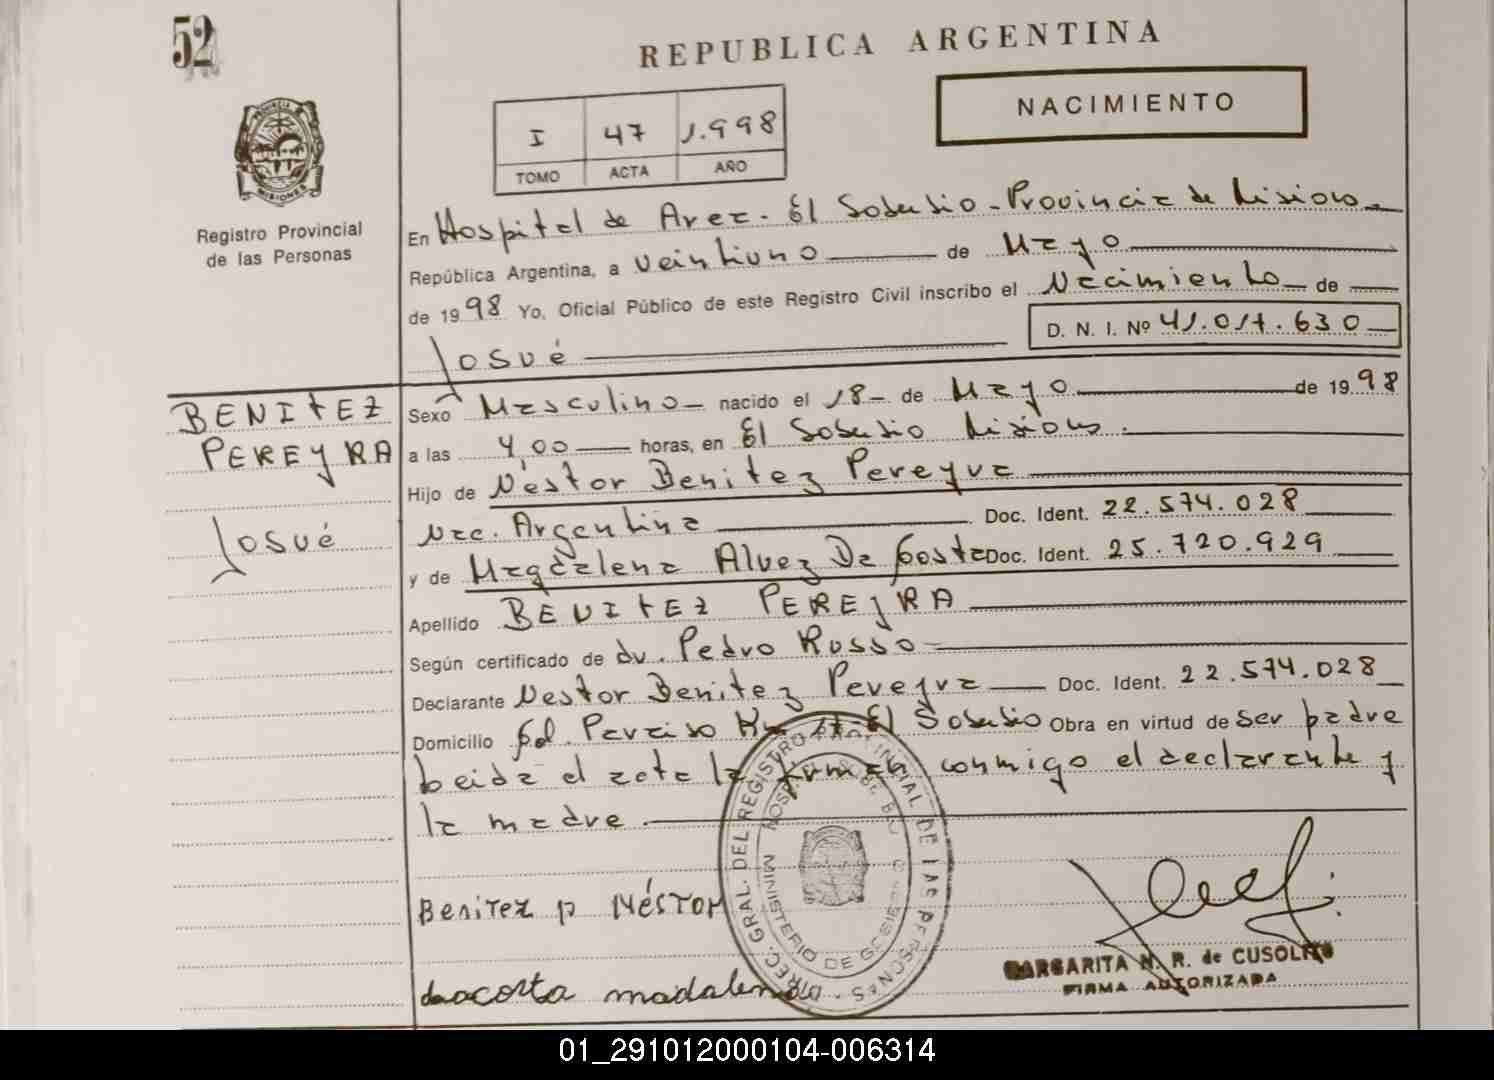 52
REPUBLICA ARGENTINA
NACIMIENTO
I 47 1.998
TOMO ACTA AÑO
MISIONES
Registro Provincial
de las Personas
En Hospital de Area - El Soberbio - Provincia de Misiones
República Argentina, a veintiuno de Mayo
de 1998 Yo, Oficial Público de este Registro Civil inscribo el Nacimiento de
Josué
D. N. I. Nº 41.017.630
BENITEZ
PEREYRA
Josué
Sexo Masculino nacido el 18 de Mayo de 1998
a las 4,00 horas, en El Soberbio Misiones.
Hijo de Néstor Benitez Pereyra
Nac. Argentina Doc. Ident. 22.574.028
y de Magdalena Alvez Da Costa Doc. Ident. 25.720.929
Apellido BENITEZ PEREYRA
Según certificado de dr. Pedro Russo
Declarante Nestor Benitez Pereyra Doc. Ident. 22.574.028
Domicilio Col. Paraiso El Soberbio Obra en virtud de ser padre
Leida el acta la firma conmigo el declarante y
la madre
DIREC. GRAL. DEL REGISTRO PROVINCIAL DE LAS PERSONAS
MINISTERIO DE GOBIERNO
Benitez p Néstor
dacosta madalena
MARGARITA N. R. de CUSOLITO
FIRMA AUTORIZADA
01_291012000104-006314